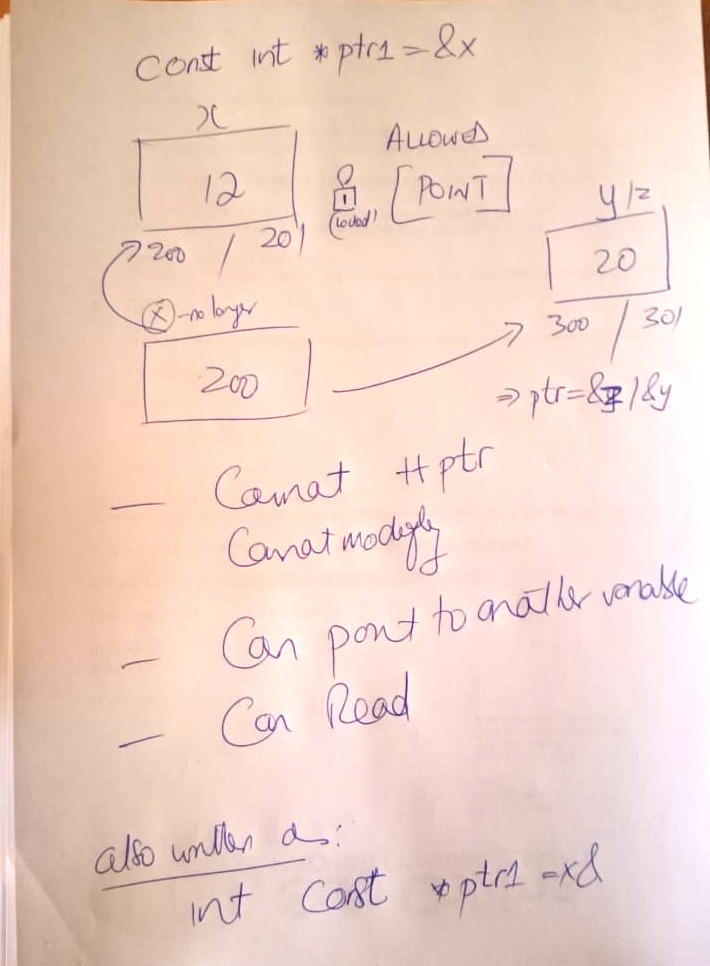 const int *ptr1 = &x
x
12
200 / 201
(locked)
ALLOWED
[POINT]
y/z
20
300 / 301
x - no longer
200
⇒ ptr = &z / &y
— Cannot ++ptr
Cannot modify
— Can point to another variable
— Can Read
also written as:
int const *ptr1 = x&